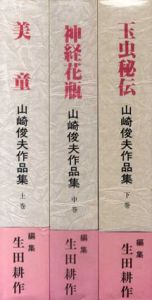 美童
山崎俊夫作品集
上巻
編集
生田耕作
神経花瓶
山崎俊夫作品集
中巻
編集
生田耕作
玉虫秘伝
山崎俊夫作品集
下巻
編集
生田耕作